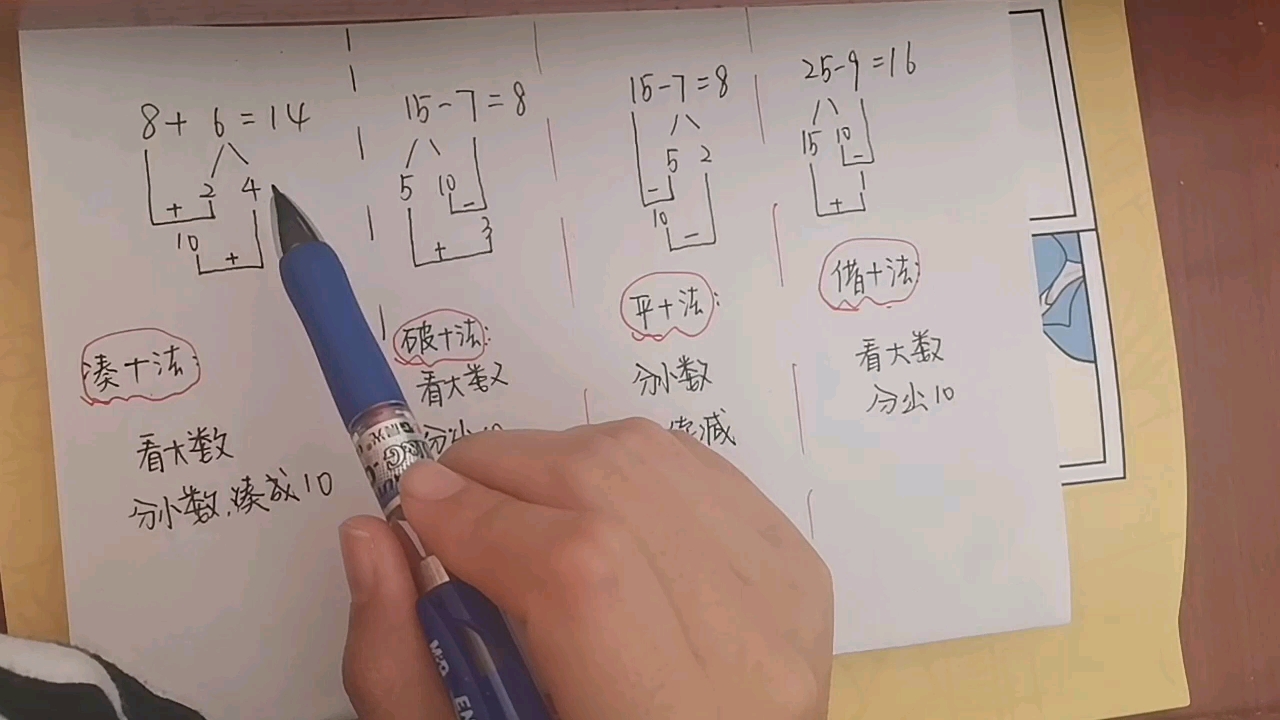 8+6=14
2 4
+
10 +
凑十法:
看大数
分小数,凑成10
15-7=8
5 10
-
+ 3
破十法:
看大数
分出10
15-7=8
5 2
-
10 -
平十法:
分小数
减
25-9=16
15 10
-
1
+
借十法:
看大数
分出10
M&G